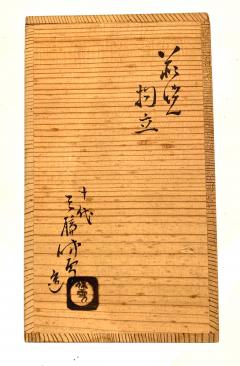 萩焼
杓立
十代
三輪休雪
造